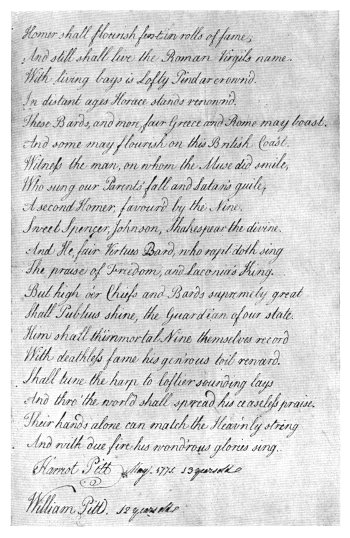 Homer shall flourish first in rolls of fame,
And still shall live the Roman Virgils name.
With living bays is Lofty Pindar crown'd.
In distant ages Horace stands renown'd.
These Bards, and more, fair Greece and Rome may boast.
And some may flourish on this British Coast.
Witness the man, on whom the Muse did smile,
Who sung our Parents' fall and Satan's guile,
A second Homer, favour'd by the Nine.
Sweet Spencer, Johnson, Shakespear the divine.
And He, fair Virtues Bard, who rapt doth sing
The praise of Freedom, and Laconia's King.
But high o'er Chiefs and Bards supremely great
Shall Publius shine, the Guardian of our state.
Him shall th'immortal Nine themselves record
With deathless fame his gen'rous toil reward.
Shall tune the harp to loftier sounding lays
And thro' the world shall spread his ceaseless praise.
Their hands alone can match the Heav'nly string
And with due fire his wond'rous glories sing.
Harriot Pitt May. 1771 13 years old
William Pitt. 12 years old